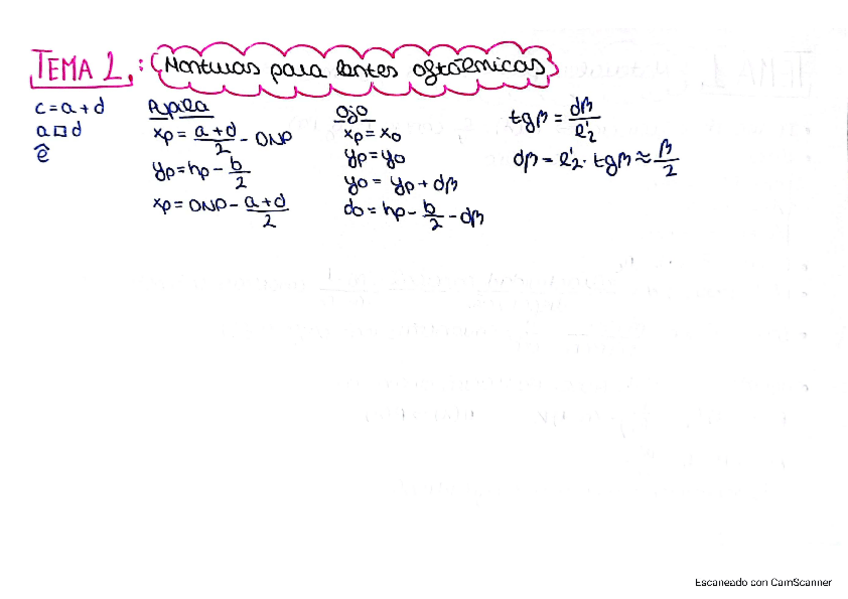 TEMA 2: Monturas para lentes oftálmicas
c = a + d
a □ d
ê
Pupila
xp = (a + d)/2 - DNP
yp = hp - b/2
xp = DNP - (a + d)/2
Ojo
xp = xo
yp = yo
yo = yp + dβ
do = hp - b/2 - dβ
tgβ = dβ/l'2
dβ = l'2 · tgβ ≈ β/2
Escaneado con CamScanner